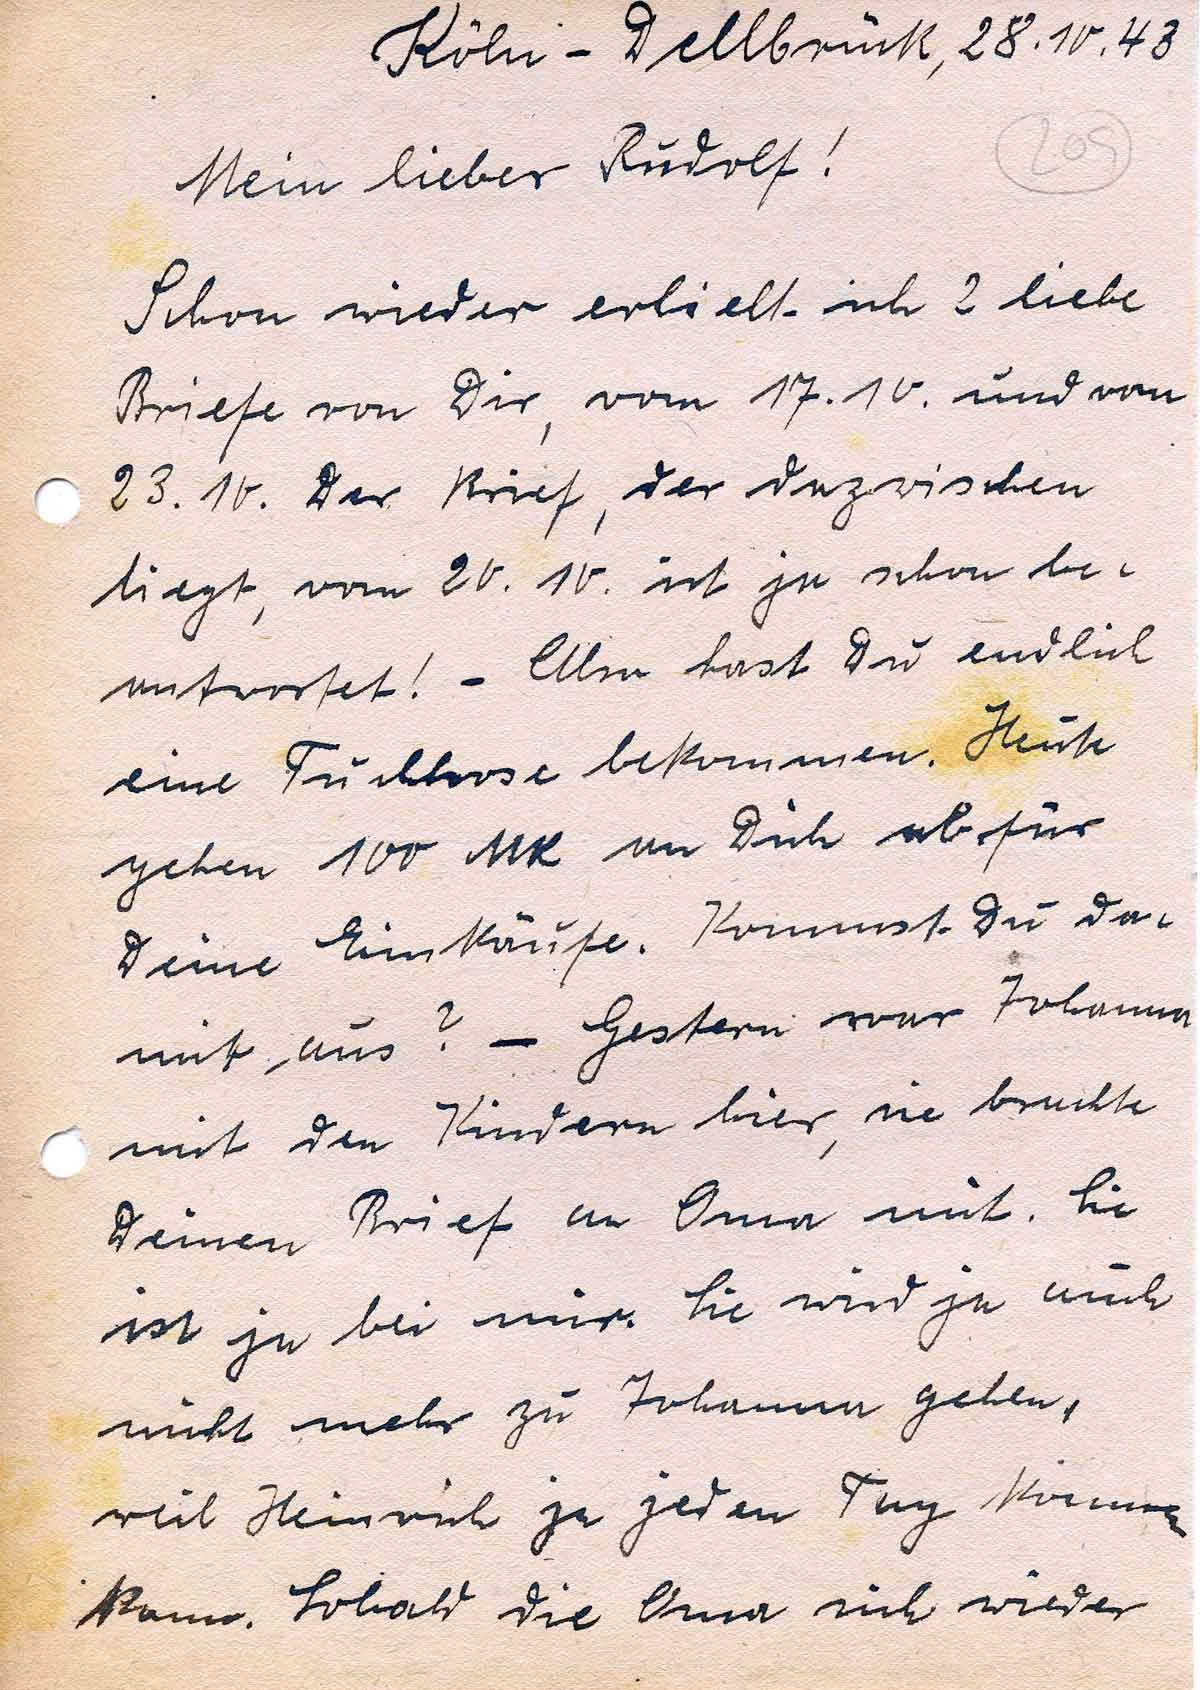 Köln - Dellbrück, 28.10.43
205
Mein lieber Rudolf!
Schon wieder erhielt ich 2 liebe
Briefe von Dir, vom 17.10. und vom
23.10. Der Brief, der dazwischen
liegt, vom 20.10. ist ja schon be-
antwortet! - Also hast Du endlich
eine Tuchhose bekommen. Heute
gehen 100 MK an Dich ab für
Deine Einkäufe. Kommst Du da-
mit aus? - Gestern war Johanna
mit den Kindern hier, sie brachte
Deinen Brief an Oma mit. Sie
ist ja bei mir. Sie wird ja auch
nicht mehr zu Johanna gehen,
weil Heinrich ja jeden Tag kommen
kann. Sobald die Oma sich wieder